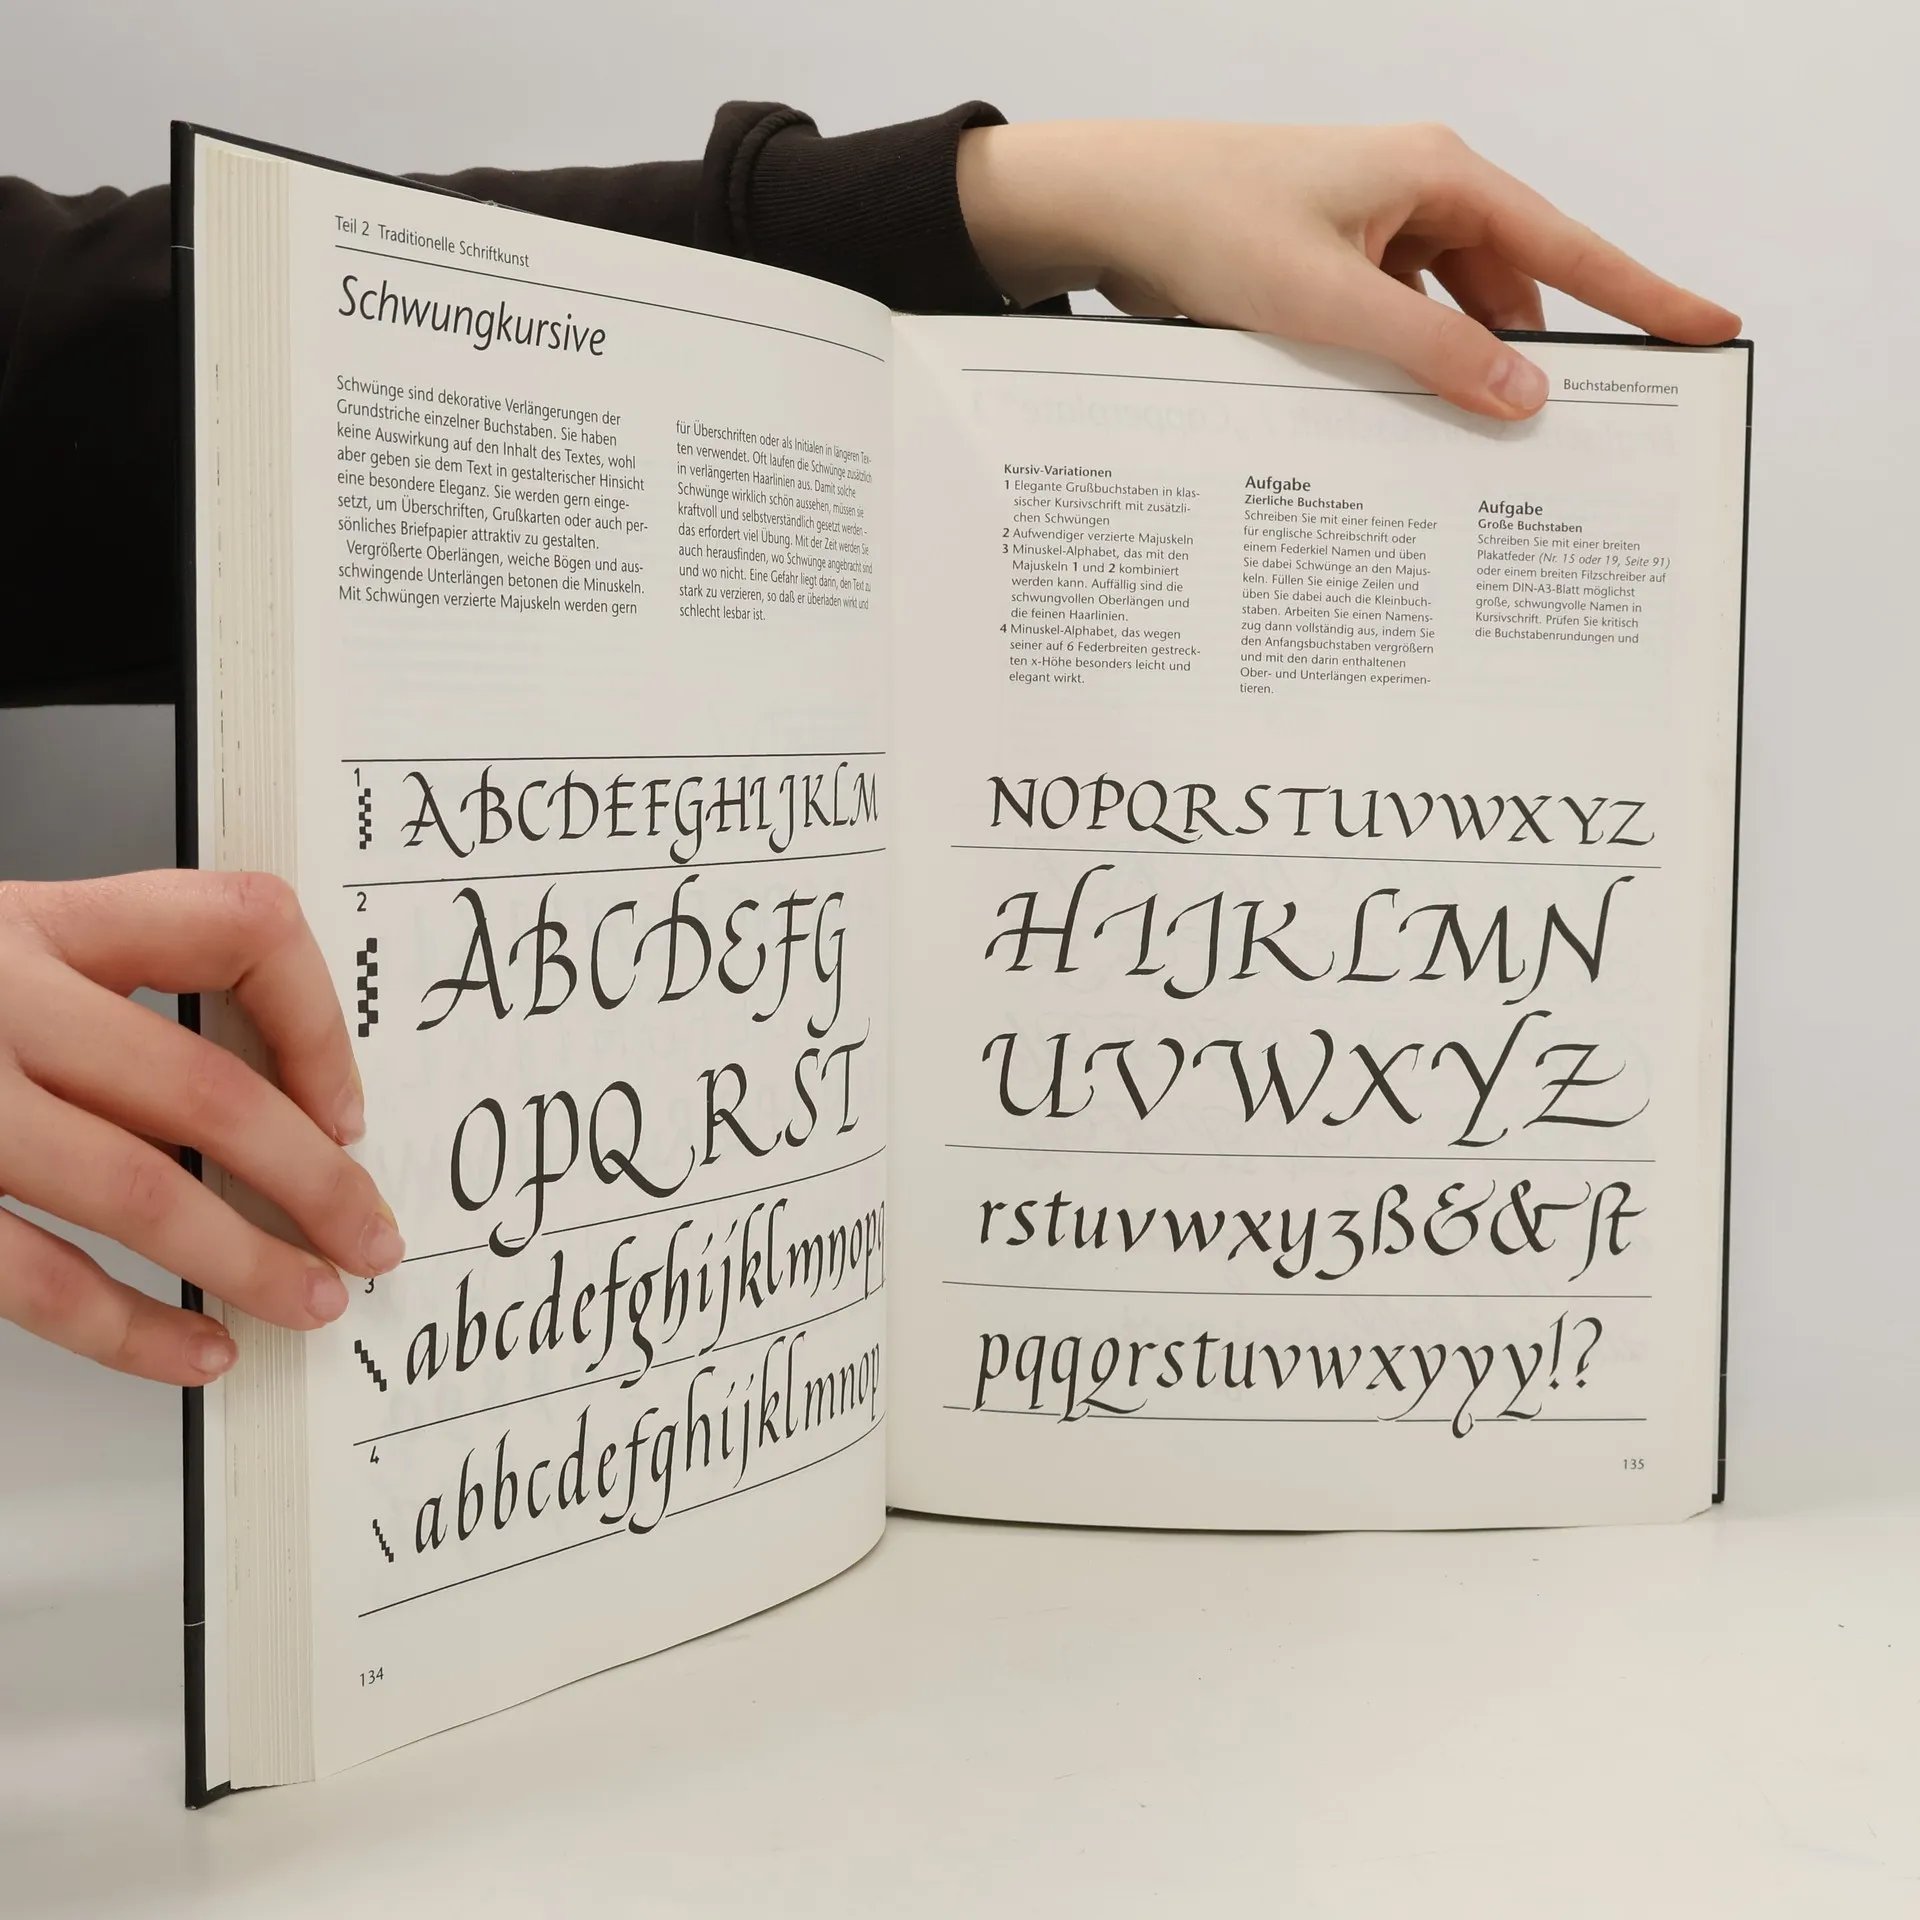 Teil 2 Traditionelle Schriftkunst
Schwungkursive
Schwünge sind dekorative Verlängerungen der
Grundstriche einzelner Buchstaben. Sie haben
keine Auswirkung auf den Inhalt des Textes, wohl
aber geben sie dem Text in gestalterischer Hinsicht
eine besondere Eleganz. Sie werden gern einge-
setzt, um Überschriften, Grußkarten oder auch per-
sönliches Briefpapier attraktiv zu gestalten.
Vergrößerte Oberlängen, weiche Bögen und aus-
schwingende Unterlängen betonen die Minuskeln.
Mit Schwüngen verzierte Majuskeln werden gern
für Überschriften oder als Initialen in längeren Tex-
ten verwendet. Oft laufen die Schwünge zusätzlich
in verlängerten Haarlinien aus. Damit solche
Schwünge wirklich schön aussehen, müssen sie
kraftvoll und selbstverständlich gesetzt werden –
das erfordert viel Übung. Mit der Zeit werden Sie
auch herausfinden, wo Schwünge angebracht sind
und wo nicht. Eine Gefahr liegt darin, den Text zu
stark zu verzieren, so daß er überladen wirkt und
schlecht lesbar ist.
1
ABCDEFGHIJKLM
2
ABCDEFG
OPQRST
3
abcdefghijklmnopq
4
abbcdefghijklmnop
134
Buchstabenformen
Kursiv-Variationen
1 Elegante Grußbuchstaben in klas-
sischer Kursivschrift mit zusätzli-
chen Schwüngen
2 Aufwendiger verzierte Majuskeln
3 Minuskel-Alphabet, das mit den
Majuskeln 1 und 2 kombiniert
werden kann. Auffällig sind die
schwungvollen Oberlängen und
die feinen Haarlinien.
4 Minuskel-Alphabet, das wegen
seiner auf 6 Federbreiten gestreck-
ten x-Höhe besonders leicht und
elegant wirkt.
Aufgabe
Zierliche Buchstaben
Schreiben Sie mit einer feinen Feder
für englische Schreibschrift oder
einem Federkiel Namen und üben
Sie dabei Schwünge an den Majus-
keln. Füllen Sie einige Zeilen und
üben Sie dabei auch die Kleinbuch-
staben. Arbeiten Sie einen Namens-
zug dann vollständig aus, indem Sie
den Anfangsbuchstaben vergrößern
und mit den darin enthaltenen
Ober- und Unterlängen experimen-
tieren.
Aufgabe
Große Buchstaben
Schreiben Sie mit einer breiten
Plakatfeder (Nr. 15 oder 19, Seite 91)
oder einem breiten Filzschreiber auf
einem DIN-A3-Blatt möglichst
große, schwungvolle Namen in
Kursivschrift. Prüfen Sie kritisch
die Buchstabenrundungen und
NOPQRSTUVWXYZ
HIJKLMN
UVWXYZ
rstuvwxyzß&&st
pqqqrstuvwxyyy!?
135